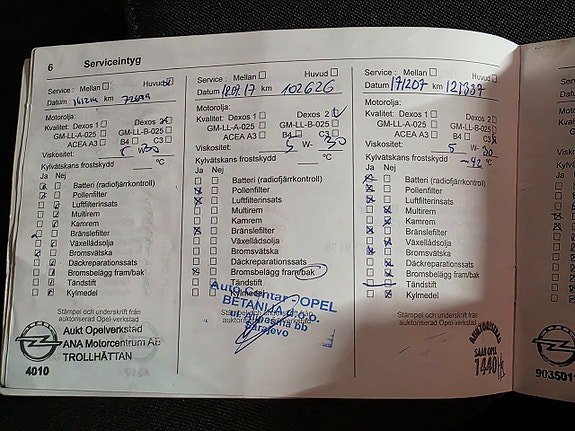 6 Serviceintyg
Service : Mellan Huvud
Datum km 72695
Motorolja:
Kvalitet: Dexos 1 Dexos 2
GM-LL-A-025 GM-LL-B-025
ACEA A3 B4 C3
Viskositet: 5 W- 30
Kylvätskans frostskydd °C
Ja Nej
Batteri (radiofjärrkontroll)
Pollenfilter
Luftfilterinsats
Multirem
Kamrem
Bränslefilter
Växellådsolja
Bromsvätska
Däckreparationssats
Bromsbelägg fram/bak
Tändstift
Kylmedel
Stämpel och underskrift från
auktoriserad Opel-verkstad
Aukt Opelverkstad
ANA Motorcentrum Ab
TROLLHÄTTAN
4010
Service : Mellan Huvud
Datum km 102626
Motorolja:
Kvalitet: Dexos 1 Dexos 2
GM-LL-A-025 GM-LL-B-025
ACEA A3 B4 C3
Viskositet: 5 W- 30
Kylvätskans frostskydd °C
Ja Nej
Batteri (radiofjärrkontroll)
Pollenfilter
Luftfilterinsats
Multirem
Kamrem
Bränslefilter
Växellådsolja
Bromsvätska
Däckreparationssats
Bromsbelägg fram/bak
Tändstift
Kylmedel
Stämpel och underskrift från
auktoriserad Opel-verkstad
Auto Centar OPEL
BETANIJA d.o.o.
bb
Sarajevo
Service : Mellan Huvud
Datum 171207 km 121337
Motorolja:
Kvalitet: Dexos 1 Dexos 2
GM-LL-A-025 GM-LL-B-025
ACEA A3 B4 C3
Viskositet: 5 W- 30
Kylvätskans frostskydd -42 °C
Ja Nej
Batteri (radiofjärrkontroll)
Pollenfilter
Luftfilterinsats
Multirem
Kamrem
Bränslefilter
Växellådsolja
Bromsvätska
Däckreparationssats
Bromsbelägg fram/bak
Tändstift
Kylmedel
Stämpel och underskrift från
auktoriserad Opel-verkstad
AUKTORISERAD
SAAB OPEL
1440
903501